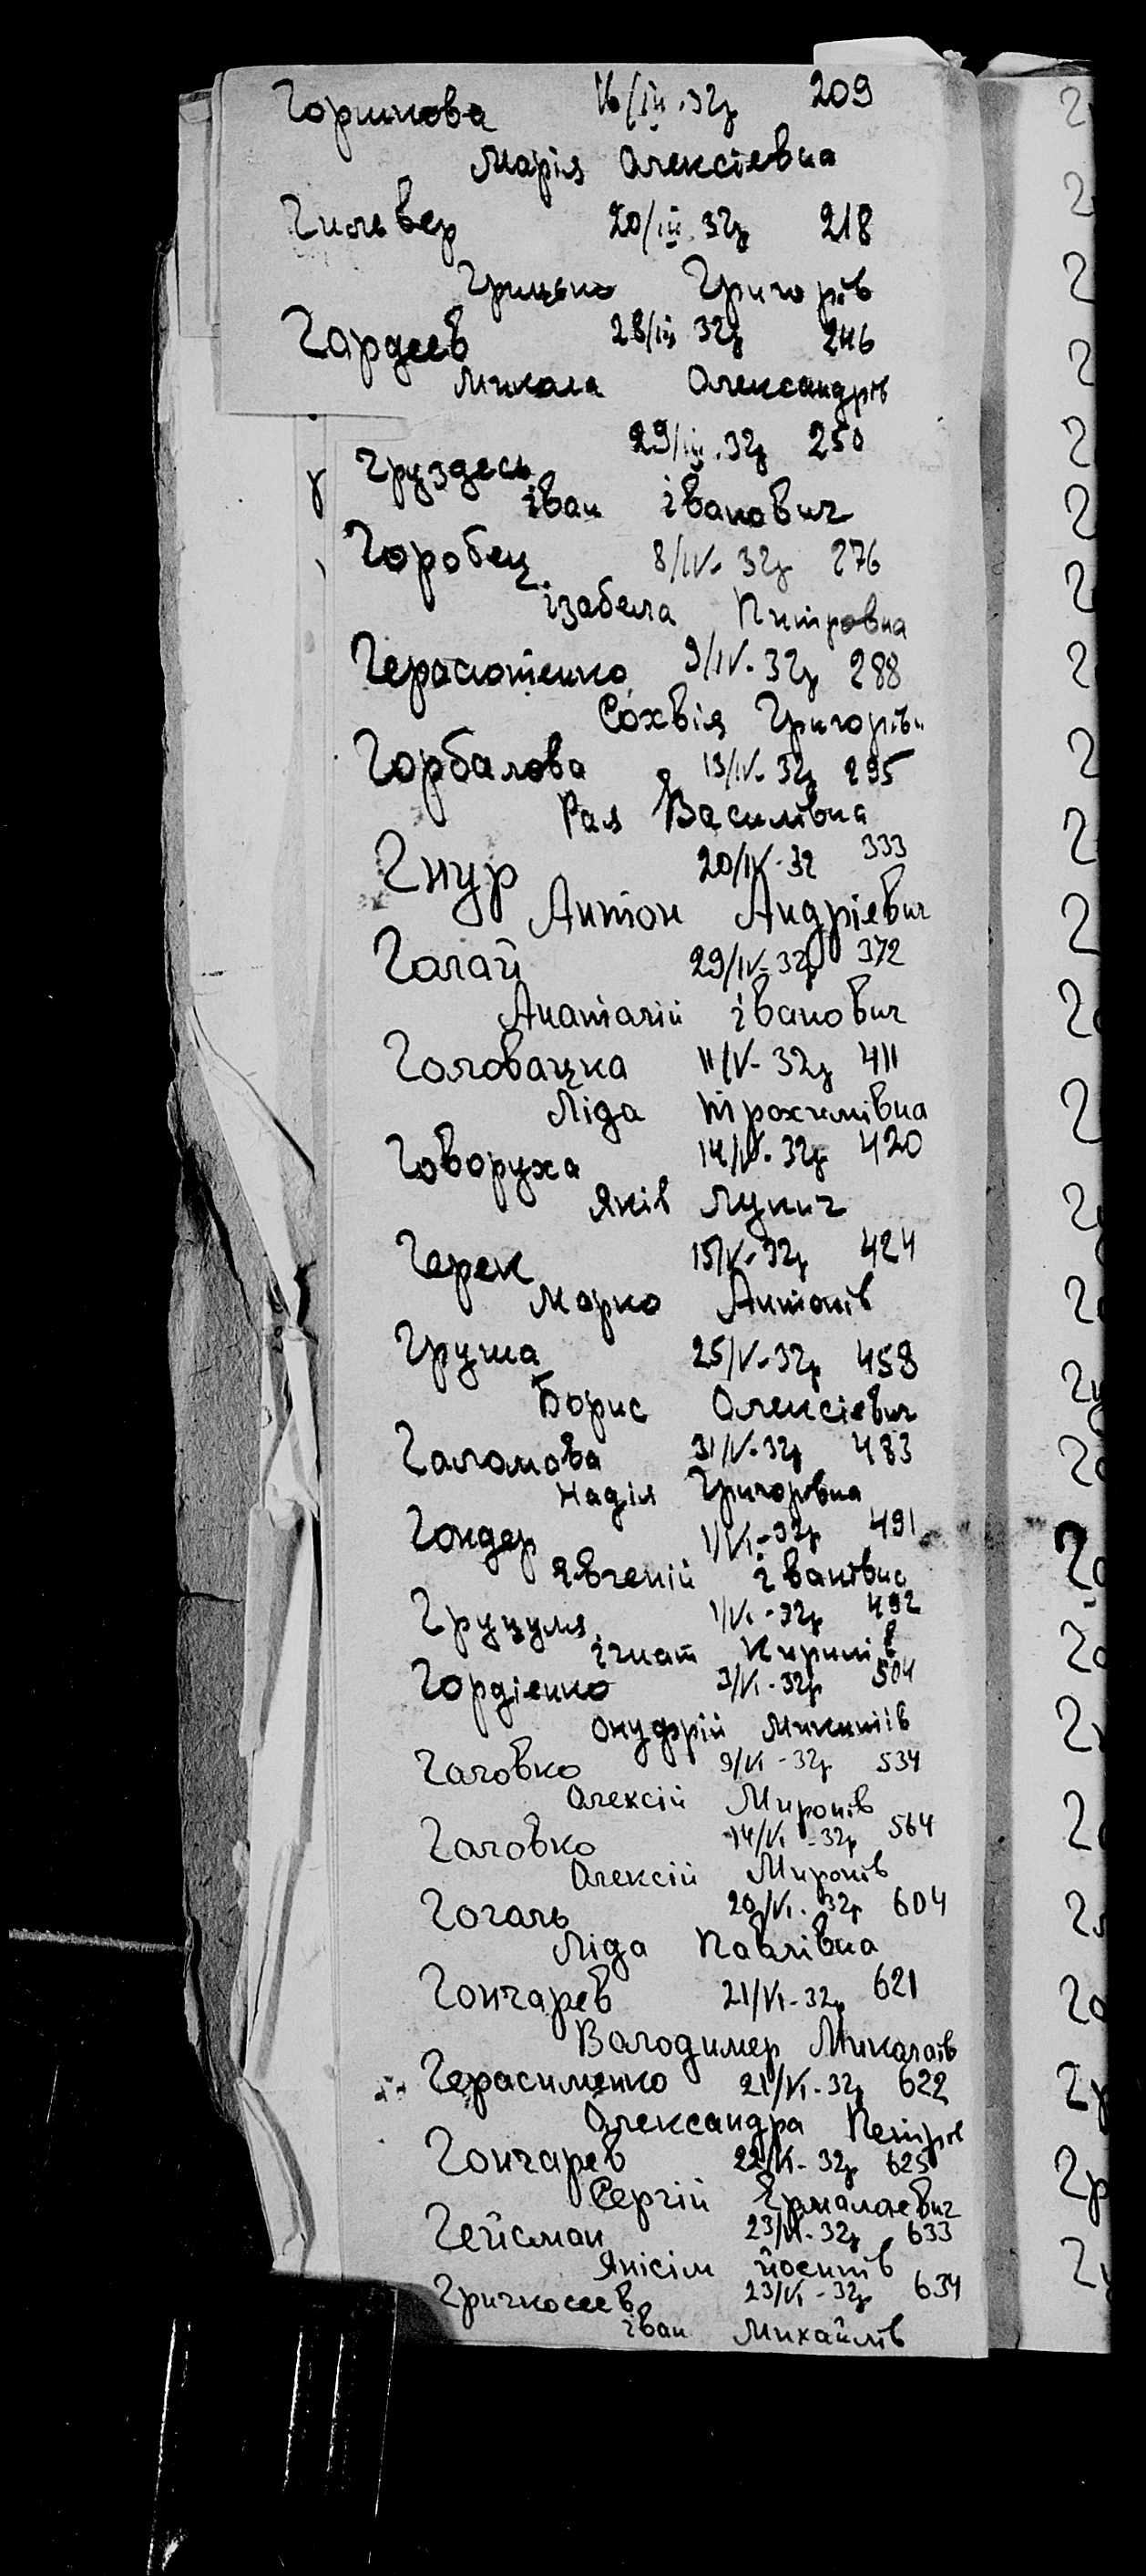 Горшкова 16/III.32р 209
Марія Олексієвна
Гильвер 20/III.32р 218
Грицько Григорів
Гардеев 28/III 32р 246
Микола Олександрів
Груздесь 29/III.32р 250
іван іванович
Горобец 8/IV- 32р 276
ізабела Питровна
Герасютенко 9/IV-32р 288
Сохвія Григорівн
Горбалова 13/IV-32р 295
Рая Василівна
Гнур 20/IV-32 333
Антон Андрієвич
Галай 29/IV-32р 372
Анатолій іванович
Головацка 11/V-32р 411
Ліда трохимівна
Говоруха 14/V-32р 420
Яків Лукич
Герек 15/V-32р 424
Марко Антонів
Груша 25/V-32р 459
Борис Олексієвич
Галамова 31/V-32р 483
Надія Григорівна
Гондер 1/VI-32р 491
Явгеній іванівна
Груцуля 1/VI-32р 492
ігнат Кирилів
Гордієнко 3/VI-32р 504
Онуфрій Микитів
Галовко 9/VI-32р 534
Олексій Миронів
Галовко 14/VI-32р 564
Олексій Миронів
Гогаль 20/VI-32р 604
Ліда Павлівна
Гончарев 21/VI-32р 621
Володимер Миколаїв
Герасименко 21/VI-32р 622
Олександра Петрів
Гончарев 22/VI-32р 625
Сергій Ярмалаєвич
Гейсман 23/VI-32р 633
Янісім йосипів
Гричкосеев 23/VI-32р 634
іван Михайлів